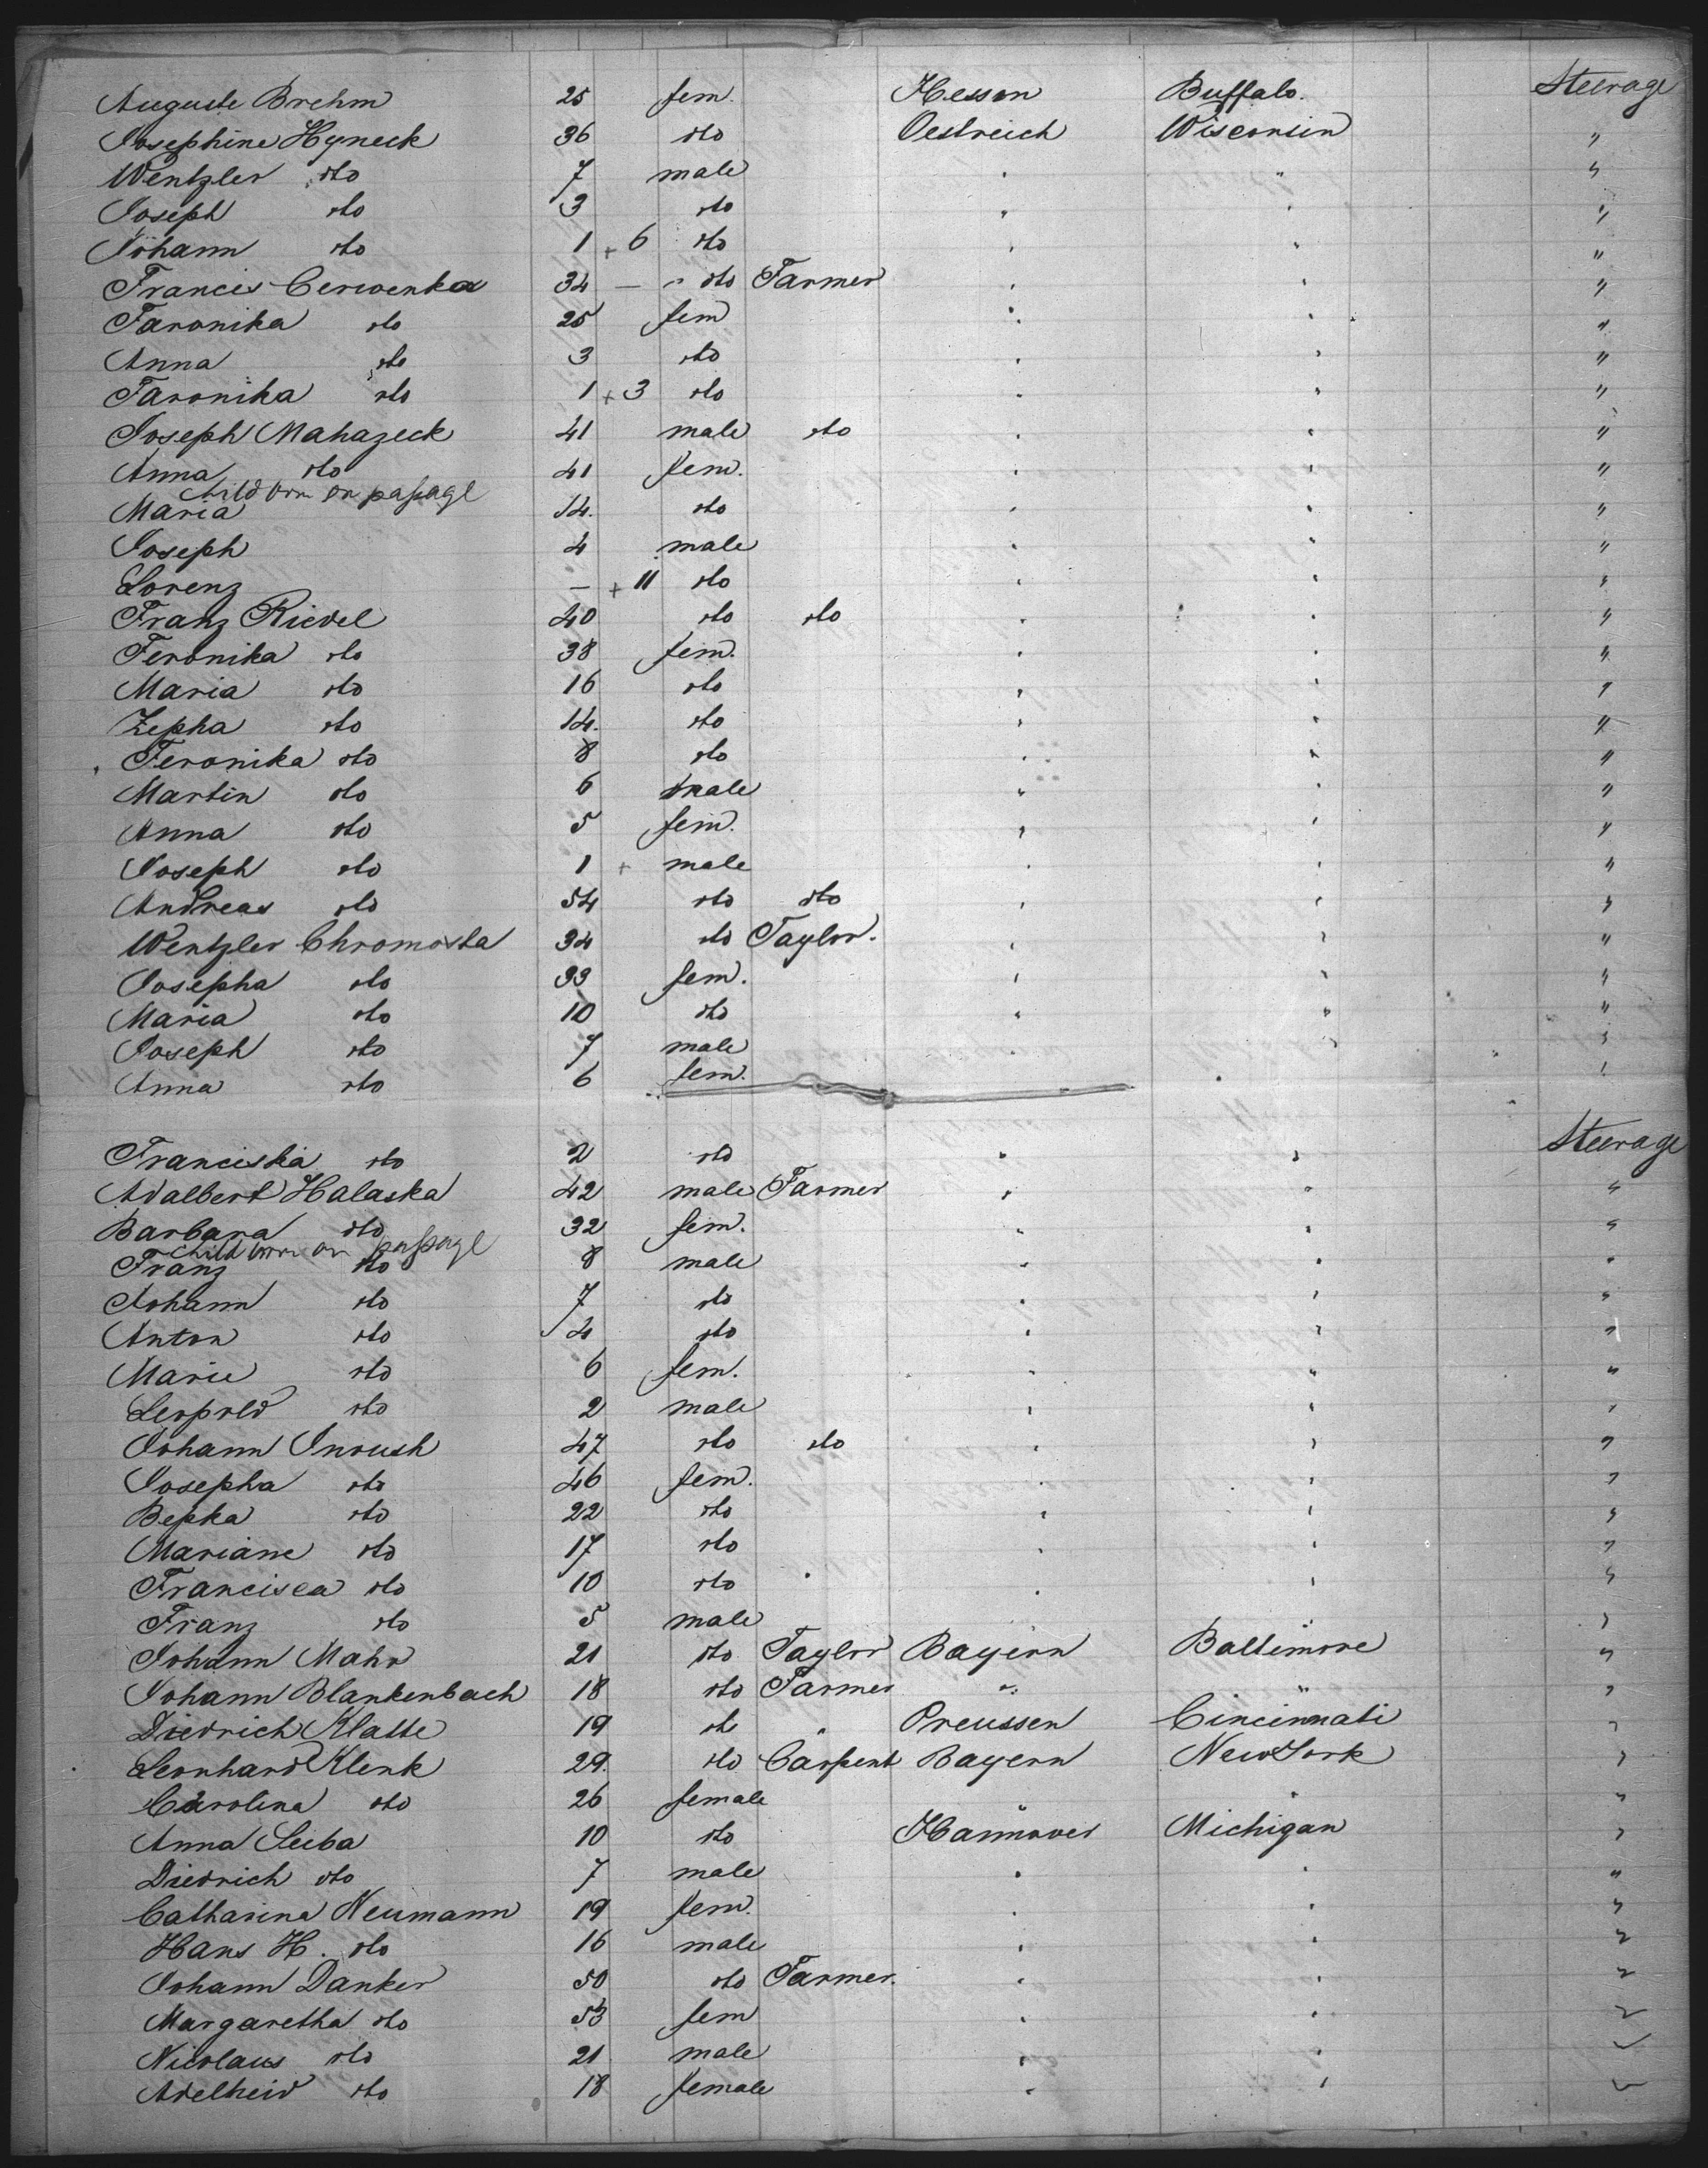 Auguste Brehm 25 fem. Hessen Buffalo. Steerage
Josephine Hyneck 36 do Oestreich Wisconsin "
Wentzler do 7 male " " "
Joseph do 3 do " " "
Johann do 1 + 6 do " " "
Francis Cerwenka 34 — " do Farmer " " "
Faronika do 25 fem " " "
Anna do 3 do " " "
Faronika do 1 + 3 do " " "
Joseph Mahazeck 41 male do " " "
Anna do 41 fem. " " "
Child born on passage
Maria 14. do " " "
Joseph 4 male " " "
Lorenz — + 11 do " " "
Franz Riedel 40 do do " " "
Feronika do 38 fem. " " "
Maria do 16 do " " "
Zepha do 14. do " " "
Feronika do 8 do " " "
Martin do 6 male " " "
Anna do 5 fem. " " "
Joseph do 1 + male " " "
Andreas do 54 do do " " "
Wentzler Chromosta 34 do Taylor. " " "
Josepha do 33 fem. " " "
Maria do 10 do " " "
Joseph do 7 male " " "
Anna do 6 fem. " "
Franciska do 2 do " " Steerage
Adalbert Halaska 42 male Farmer " " "
Barbara do 32 fem. " " "
Child born on passage
Franz do 8 male " " "
Johann do 7 do " " "
Anton do 4 do " " "
Marie do 6 fem. " " "
Leopold do 2 male " " "
Johann Inoush 47 do do " " "
Josepha do 46 fem. " " "
Bepka do 22 do " " "
Mariane do 17 do " " "
Francisca do 10 do " " "
Franz do 5 male " "
Johann Mahr 21 do Taylor Bayern Baltimore "
Johann Blankenbach 18 do Farmer " " "
Diedrich Klatte 19 do " Preussen Cincinnati "
Leonhard Klenk 29. do Carpent Bayern New York "
Carolina do 26 female " " "
Anna Seeba 10 do Hannover Michigan "
Diedrich do 7 male " " "
Catharina Neumann 19 fem. " " "
Hans H. do 16 male " " "
Johann Danker 50 do Farmer. " " "
Margaretha do 53 fem " " "
Nicolaus do 21 male " " "
Adelheid do 18 female " " "